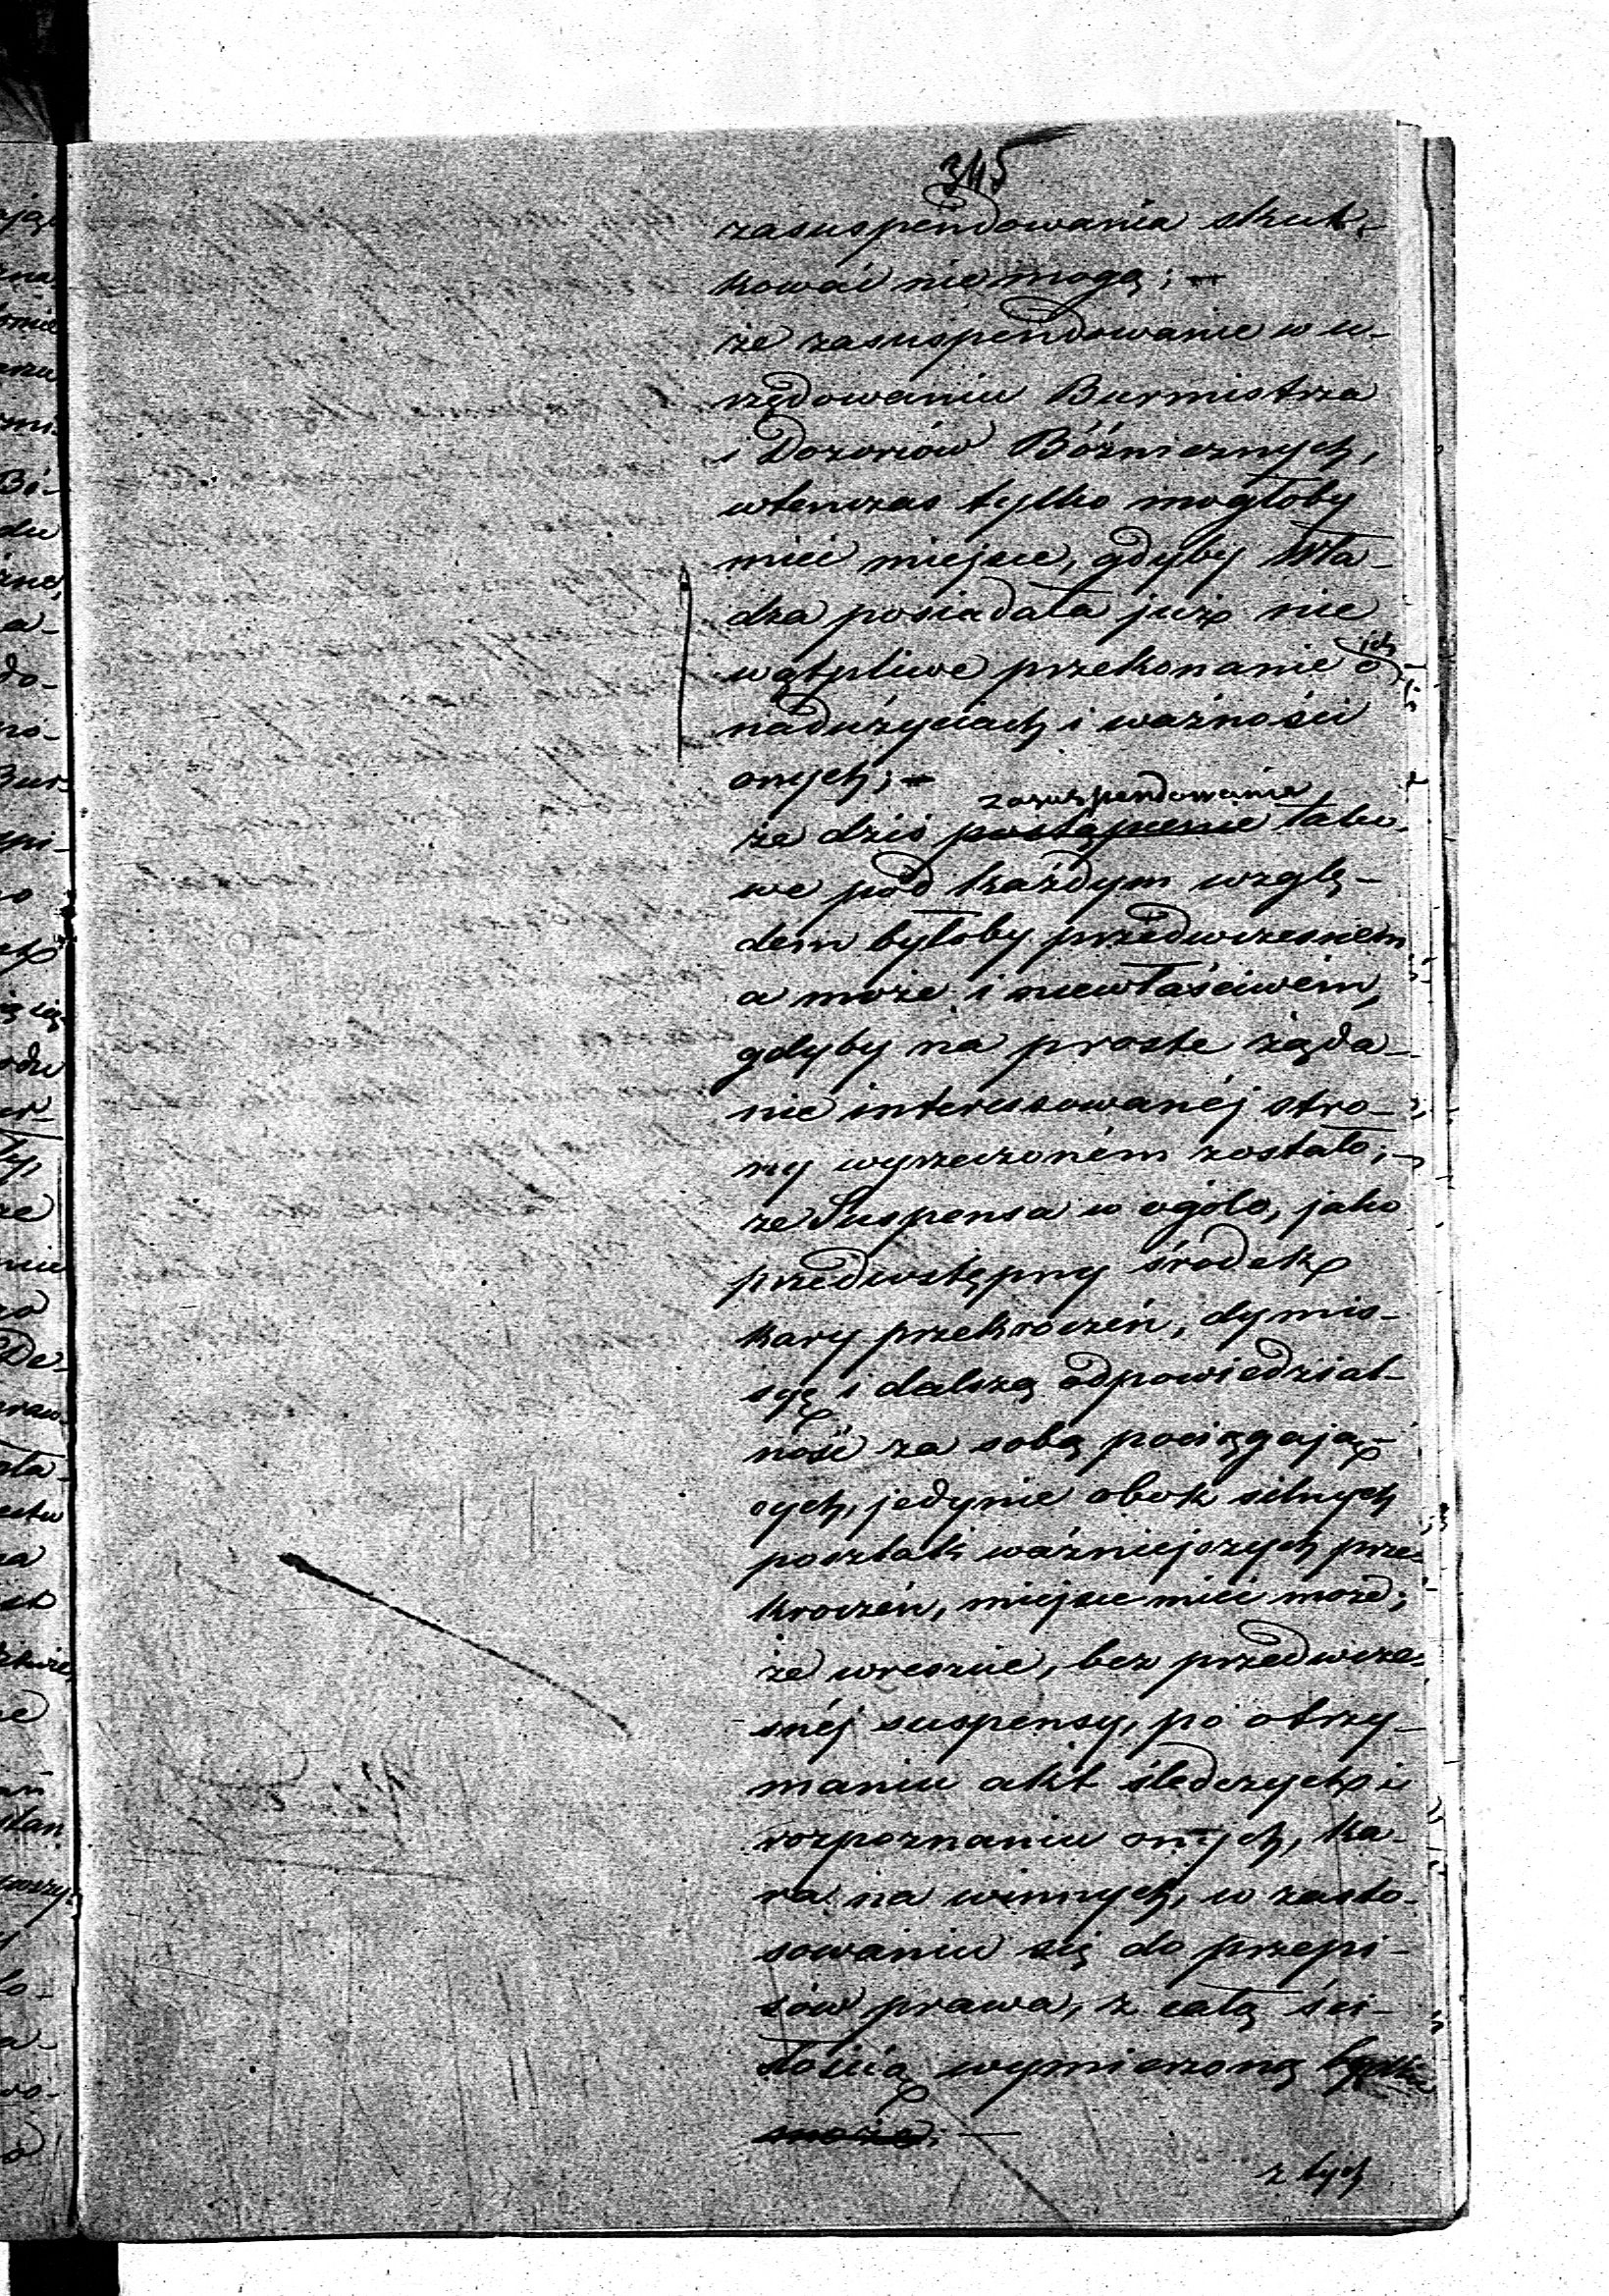 345
zasuspendowania skut-
kować nie mogą; —
że zasuspendowanie w u-
rzędowaniu Burmistrza
i Dozorców Bóźnicznych,
wtenczas tylko mogłoby
mieć miejsce, gdyby Wła-
dza posiadała już nie
wątpliwe przekonanie o ich
nadużyciach i ważności
onych; —
zasuspendowanie
że dziś postąpienie tako-
we pod każdym wzglę-
dem byłoby przedwczesnem
a może i niewłaściwém,
gdyby na proste żąda-
nie interessowanéj stro-
ny wyrzeczoném zostało; —
że Suspensa w ogóle, jako
przedwstępny środek
kary przekroczeń, dymis-
syę i dalszą odpowiedzial-
ność za sobą pociągają-
cych, jedynie obok silnych
poszlak ważniejszych prze-
kroczeń, miejsce mieć może;
że wreszcie, bez przedwcze-
snéj suspensy, po otrzy-
maniu akt śledczych i
rozpoznaniu onych, ka-
ra na winnych, w zasto-
sowaniu się do przepi-
sów prawa, z całą ści-
słością wymierzoną
może; —
z tych